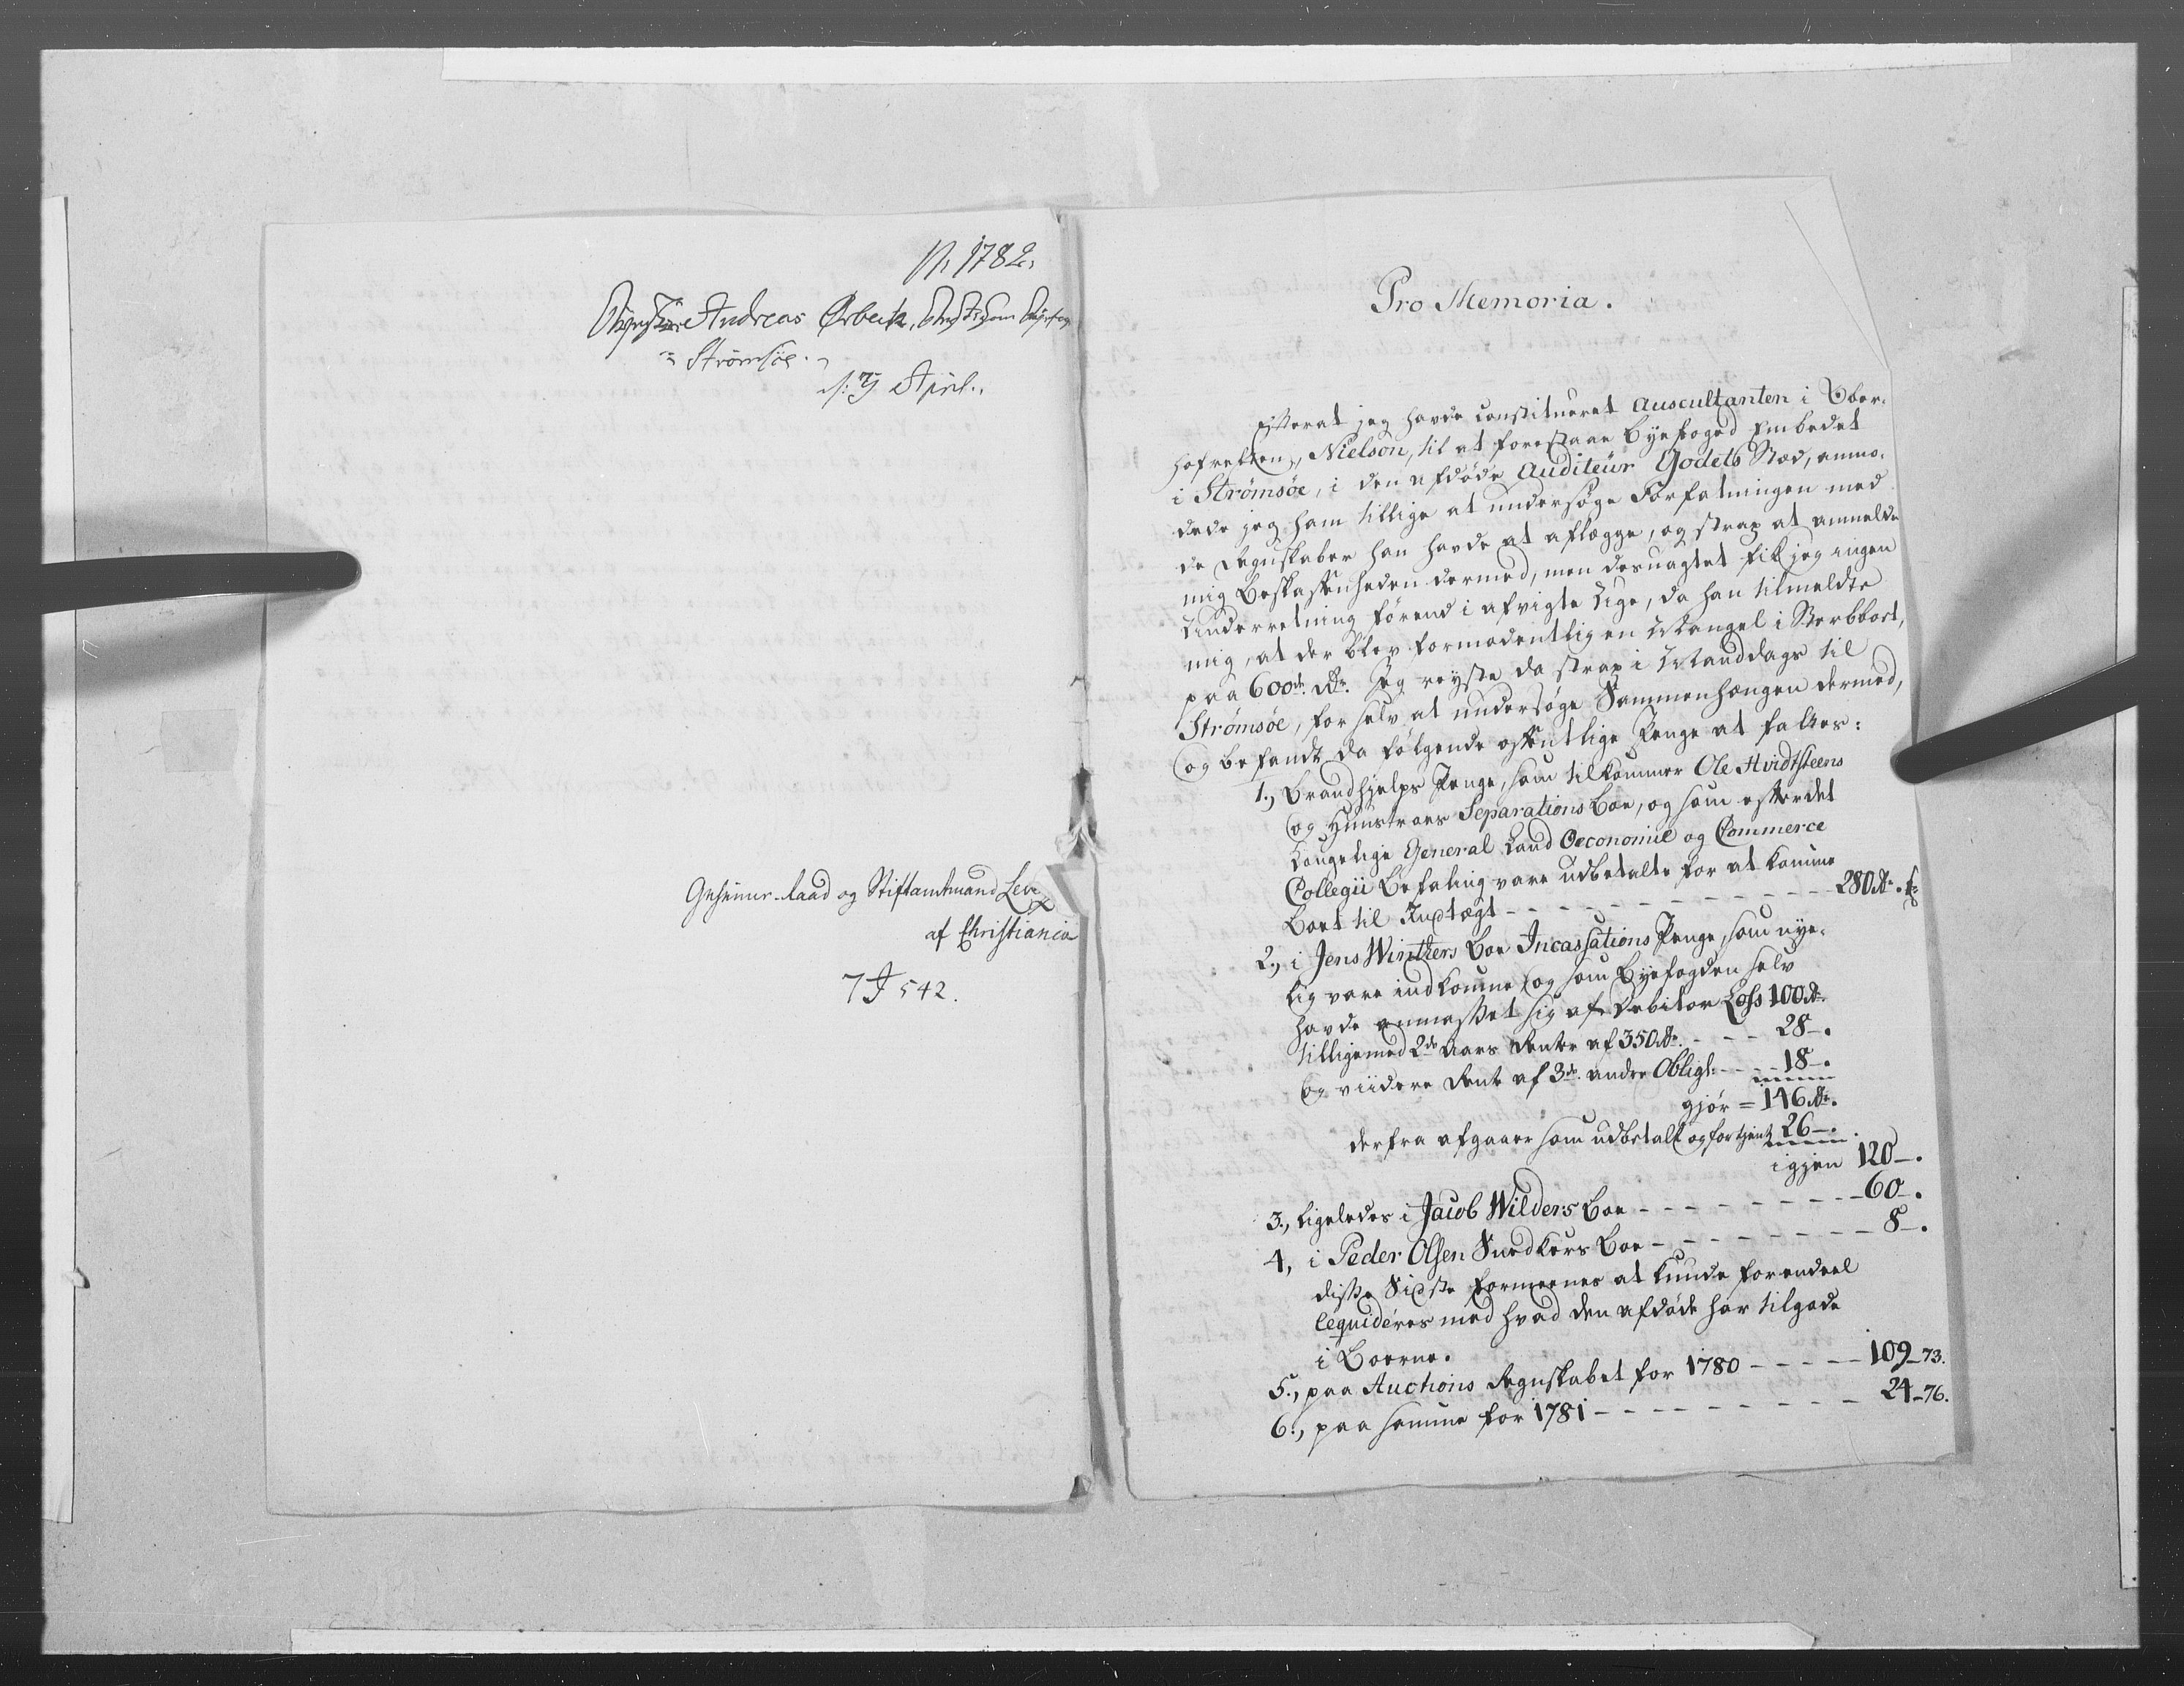 1782.
Andreas Ørbeck,
Strømsøe.
d: 7 April.
Geheimer-Raad og Stiftamtmand Lev
af Christiania
7 J 542.
Pro Memoria.
Efterat jeg havde constitueret Auscultanten i Ober-
hofretten, Nielson, til at forestaae Byefoged Embedet
i Strømsøe, i den afdøde Auditeur Godets Sted, anmo-
dede jeg ham tillige at undersøge Forfatningen med
de Regnskaber han havde at aflægge, og strax at anmelde
mig Beskaffenheden dermed, men desuagtet fik jeg ingen
Underretning førend i afvigte Uge, da han tilmeldte
mig, at der blev formodentlig en Mangel i Sterbboet,
paa 600 Rdr. Jeg reyste da strax i Manddags til
Strømsøe, for selv at undersøge Sammenhængen dermed,
og befandt da følgende offentlige Penge at fattes:
1., Brandhjelps Penge, som tilkommer Ole Hvidtsteens
og Hustroes Separations Boe, og som efter det
Kongelige General Land Oeconomie og Commerce
Collegii Befaling vare udbetalte for at komme
Boet til Indtægt - - - - - - - - - - 280 Rdr.
2., i Jens Winthers Boe Incassations Penge, som nye-
lig vare indkomne og som Byefogden selv
havde anmasset sig af Debitor Loss 100 Rdr.
tilligemed 2de Aars Renter af 350 Rdr. - - - 28 -.
og viidere Rente af 3de andre Obligt: - - - 18 -.
gjør = 146 Rdr.
derfra afgaaer som udbetalt og fortjent 26 -.
igjen 120 -.
3., ligeledes i Jacob Wilders Boe - - - - - - - - - 60 -.
4, i Peder Olsen Snedkers Boe - - - - - - - - - 8 -.
disse Sidste formeenes at kunde forendeel
leqvideres med hvad den afdøde har tilgode
i Boerne.
5., paa Auctions Regnskabet for 1780 - - - - - 109 - 73.
6., paa samme for 1781 - - - - - - - - - 24 - 76.